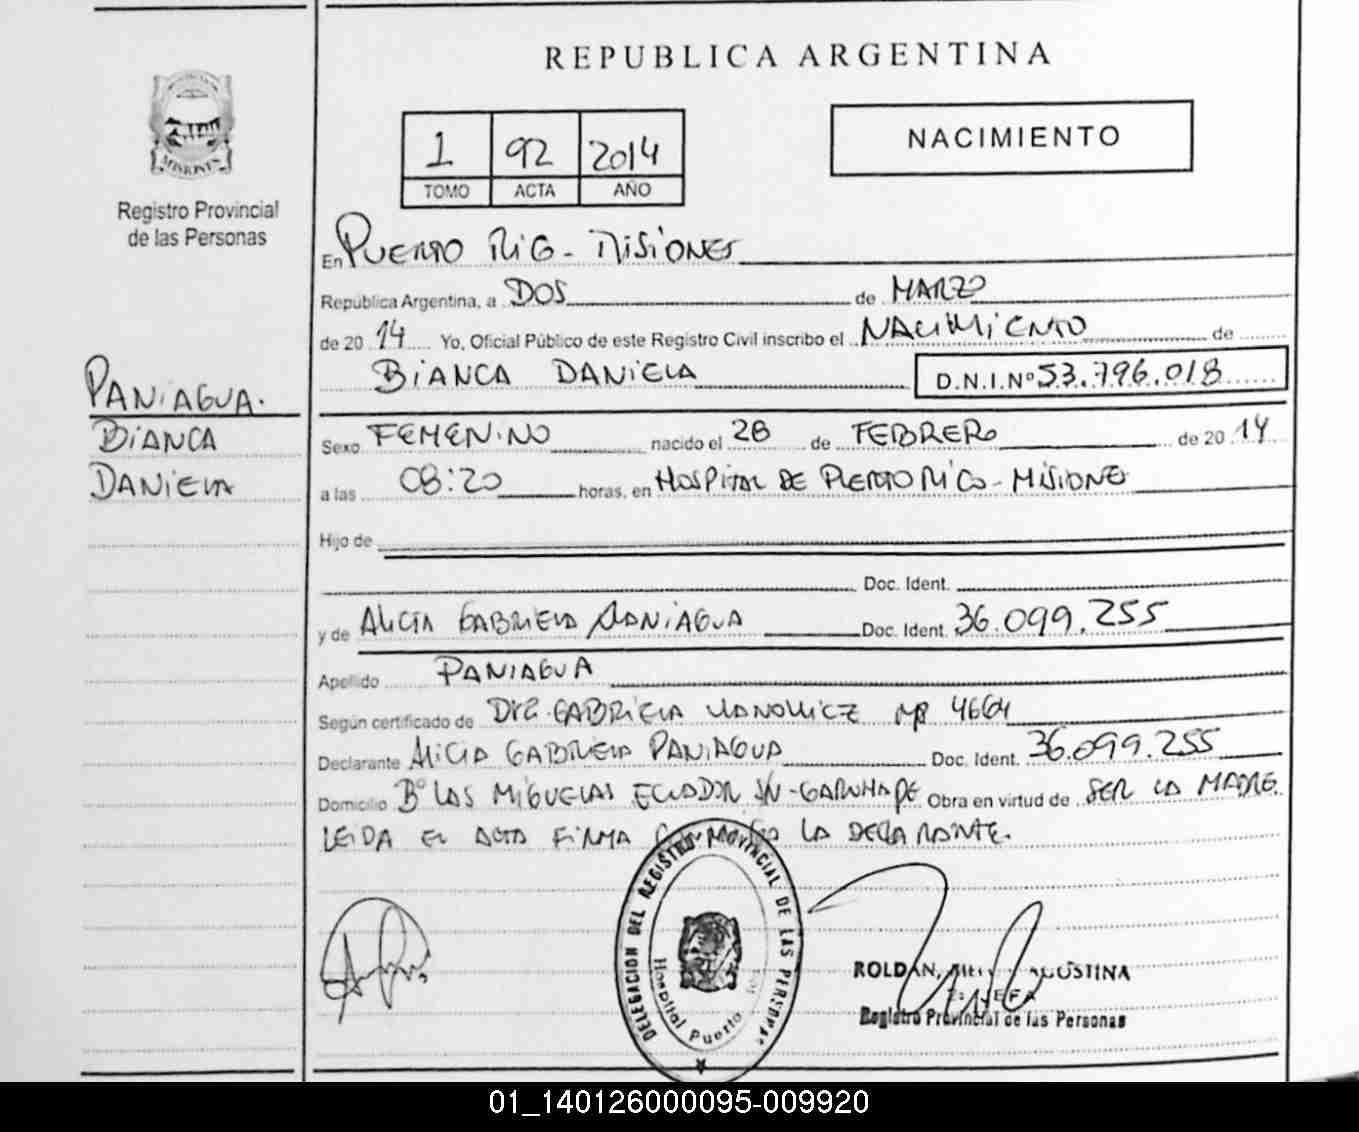 REPUBLICA ARGENTINA
NACIMIENTO
1 92 2014
TOMO ACTA AÑO
Registro Provincial
de las Personas
MISIONES
PANIAGUA.
BIANCA
DANIELA
En PUERTO RICO - MISIONES
República Argentina, a DOS de MARZO
de 20 14 Yo, Oficial Público de este Registro Civil inscribo el NACIMIENTO de
BIANCA DANIELA D.N.I.Nº 53.796.018
Sexo FEMENINO nacido el 28 de FEBRERO de 20 14
a las 08:20 horas, en HOSPITAL DE PUERTO RICO - MISIONES
Hijo de
Doc. Ident.
y de ALICIA GABRIELA PANIAGUA Doc. Ident. 36.099.255
Apellido PANIAGUA
Según certificado de DRA. GABRIELA MP 4664
Declarante ALICIA GABRIELA PANIAGUA Doc. Ident. 36.099.255
Domicilio Bº LAS MIGUELAS ECUADOR S/N - GARUHAPE Obra en virtud de SER LA MADRE.
LEIDA EL ACTA FIRMA CONMIGO LA DECLARANTE.
DELEGACION DEL REGISTRO PROVINCIAL DE LAS PERSONAS
Hospital Puerto Rico
ROLDAN, AGUSTINA
JEFA
Registro Provincial de las Personas
01_140126000095-009920